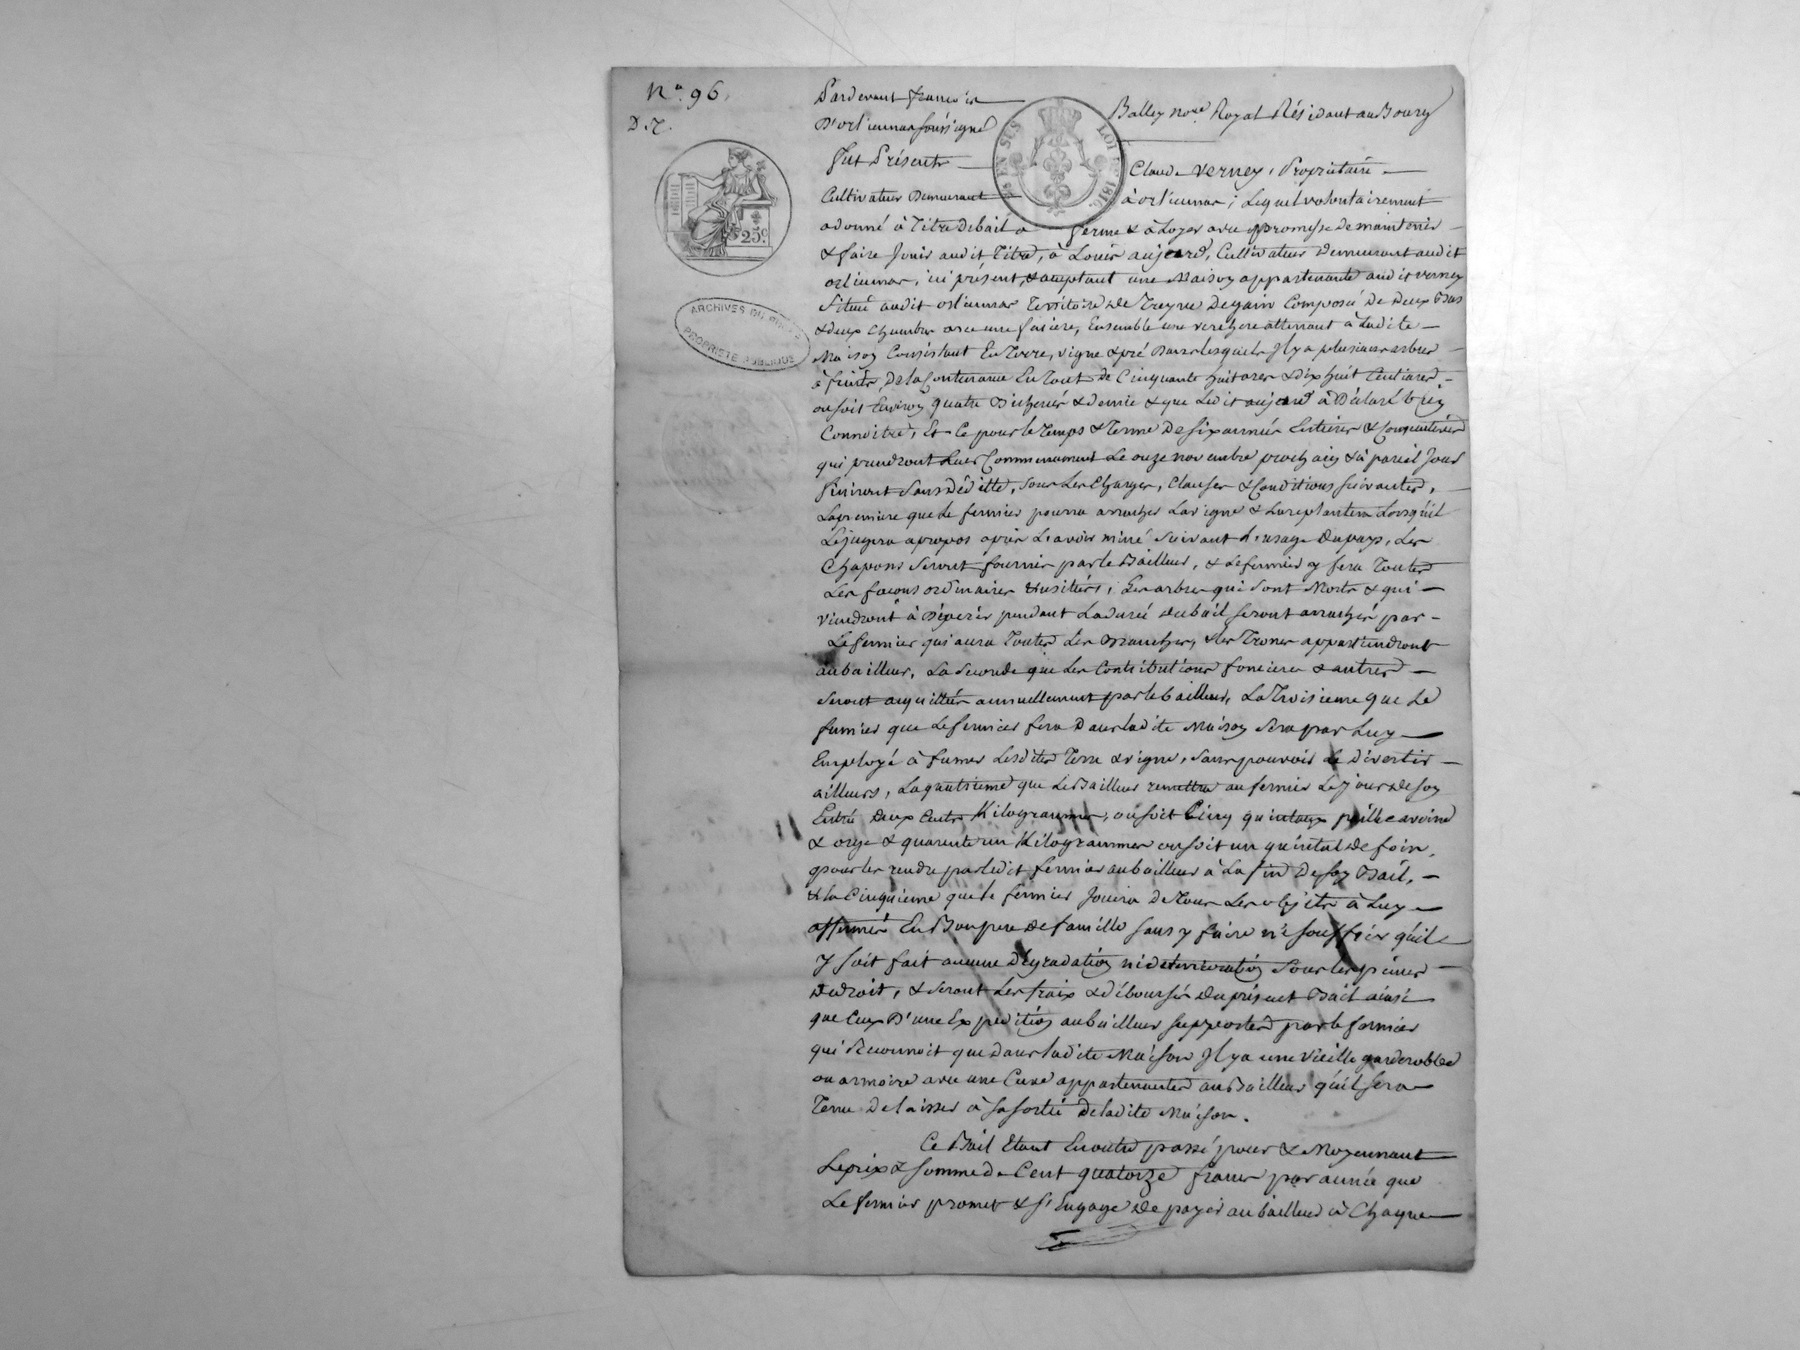 N.º 96.
D.7.
Pardevant françois Balley no.re Royal Résidant au Bourg
D'orlienas soussigné
Fut Présent Claude Verney, Propriétaire
Cultivateur Demeurant à orlienas; Lequel volontairement
a donné à Titre de bail à ferme & à Loyer avec promesse de maintenir
& faire Jouir audit Titre, à Louis aujard, Cultivateur demeurant audit
orlienas, ici présent, & acceptant une Maison appartenante audit verney
Située audit orlienas Territoire de Composé de Deux Bas
& deux chambres avec une, Ensemble une verchere attenant à Ladite
Maison Consistant En Terre, vigne & pré Dans lesquels Il y a plusieurs arbres
à fruits, De la Contenance En Tout de Cinquante huit ares & dix huit Centiares,
ou soit Environ quatre Bicherées & demie & que Ledit aujard à Déclaré bien
Connoitre, Et Ce pour le Temps & Terme De six années Entières & Consécutives
qui prendront Leur Commencement Le onze novembre prochain & à pareil Jour
finiront Sans Déditte, sous Les Charges, Clauses & Conditions suivantes,
La premiere que Le fermier pourra arracher La vigne & La replantera Lorsqu'il
Le jugera apropos après L'avoir miné suivant L'usage Du pays, Les
Chapons Seront fournis par le Bailleur, & Le fermier y fera Toutes
Les façons ordinaires & usitées, Les arbres qui sont Morts & qui
viendront à Dépérir pendant La durée du bail seront arrachés par
Le fermier qui aura Toutes Les Branches, & les Troncs appartiendront
au bailleur, La Seconde que Les Contributions foncieres & autres
Seront acquittées annuellement par le bailleur, La Troisieme que Le
fumier que Le fermier fera Dans ladite Maison Sera par Luy
Employé à fumer Lesdites Terre & vigne, Sans pouvoir Le Divertir
ailleurs, La quatrieme que Le Bailleur remettra au fermier Le jour de son
Entrée deux Cents Kilogrammes, ou soit Cinq quintaux paille avoine
& orge & quarante un Kilogrammes ou soit un quintal de foin,
pour les rendre par ledit fermier au bailleur à La fin De son Bail,
& la Cinquieme que le fermier Jouira de Tous Les objets à Luy
affermés En Bon pere de famille sans y faire ni souffrir qu'il
y soit fait aucune Dégradation ni deterioration Sous les peines
de droit, & Seront Les frais & déboursés du présent Bail ainsi
que Ceux D'une Expedition au bailleur supportés par le fermier
qui Reconnoit que Dans ladite Maison Il y a une vieille garderobbe
ou armoire avec une Cuve appartenantes au Bailleur qu'il sera
Tenu de laisser à sa sortie De ladite Maison.
Ce Bail Etant Enoutre passé pour & Moyennant
Le prix & somme de Cent quatorze francs par année que
Le fermier promet & s'Engage de payer au bailleur à Chaque
25c.
EN SUS
LOI DE 1816.
ARCHIVES DU RHÔNE
PROPRIÉTÉ PUBLIQUE